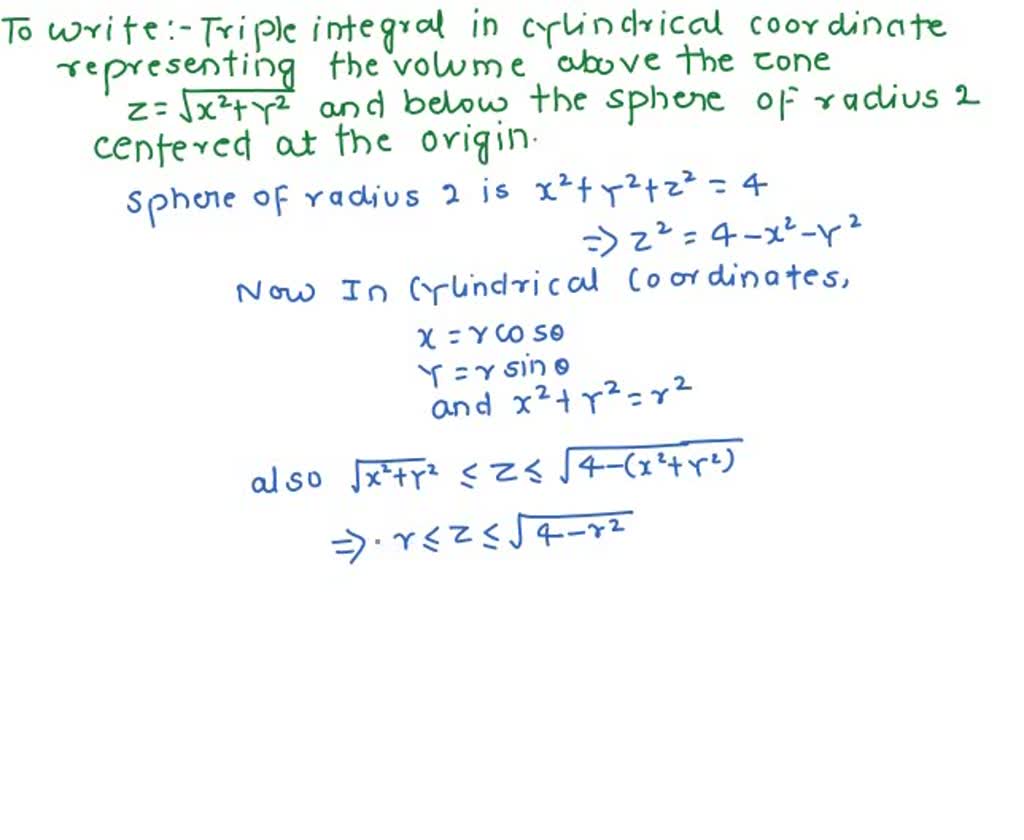 To write:- Triple integral in cylindrical coordinate
representing the volume above the cone
z=√x²+Y² and below the sphere of radius 2
centered at the origin.
sphere of radius 2 is x²+Y²+z² = 4
⇒ z² = 4-x²-Y²
Now In Cylindrical Coordinates,
x = r cosθ
Y = r sinθ
and x²+Y²=r²
also √x²+Y² ≤ z ≤ √4-(x²+Y²)
⇒· r ≤ z ≤ √4-r²